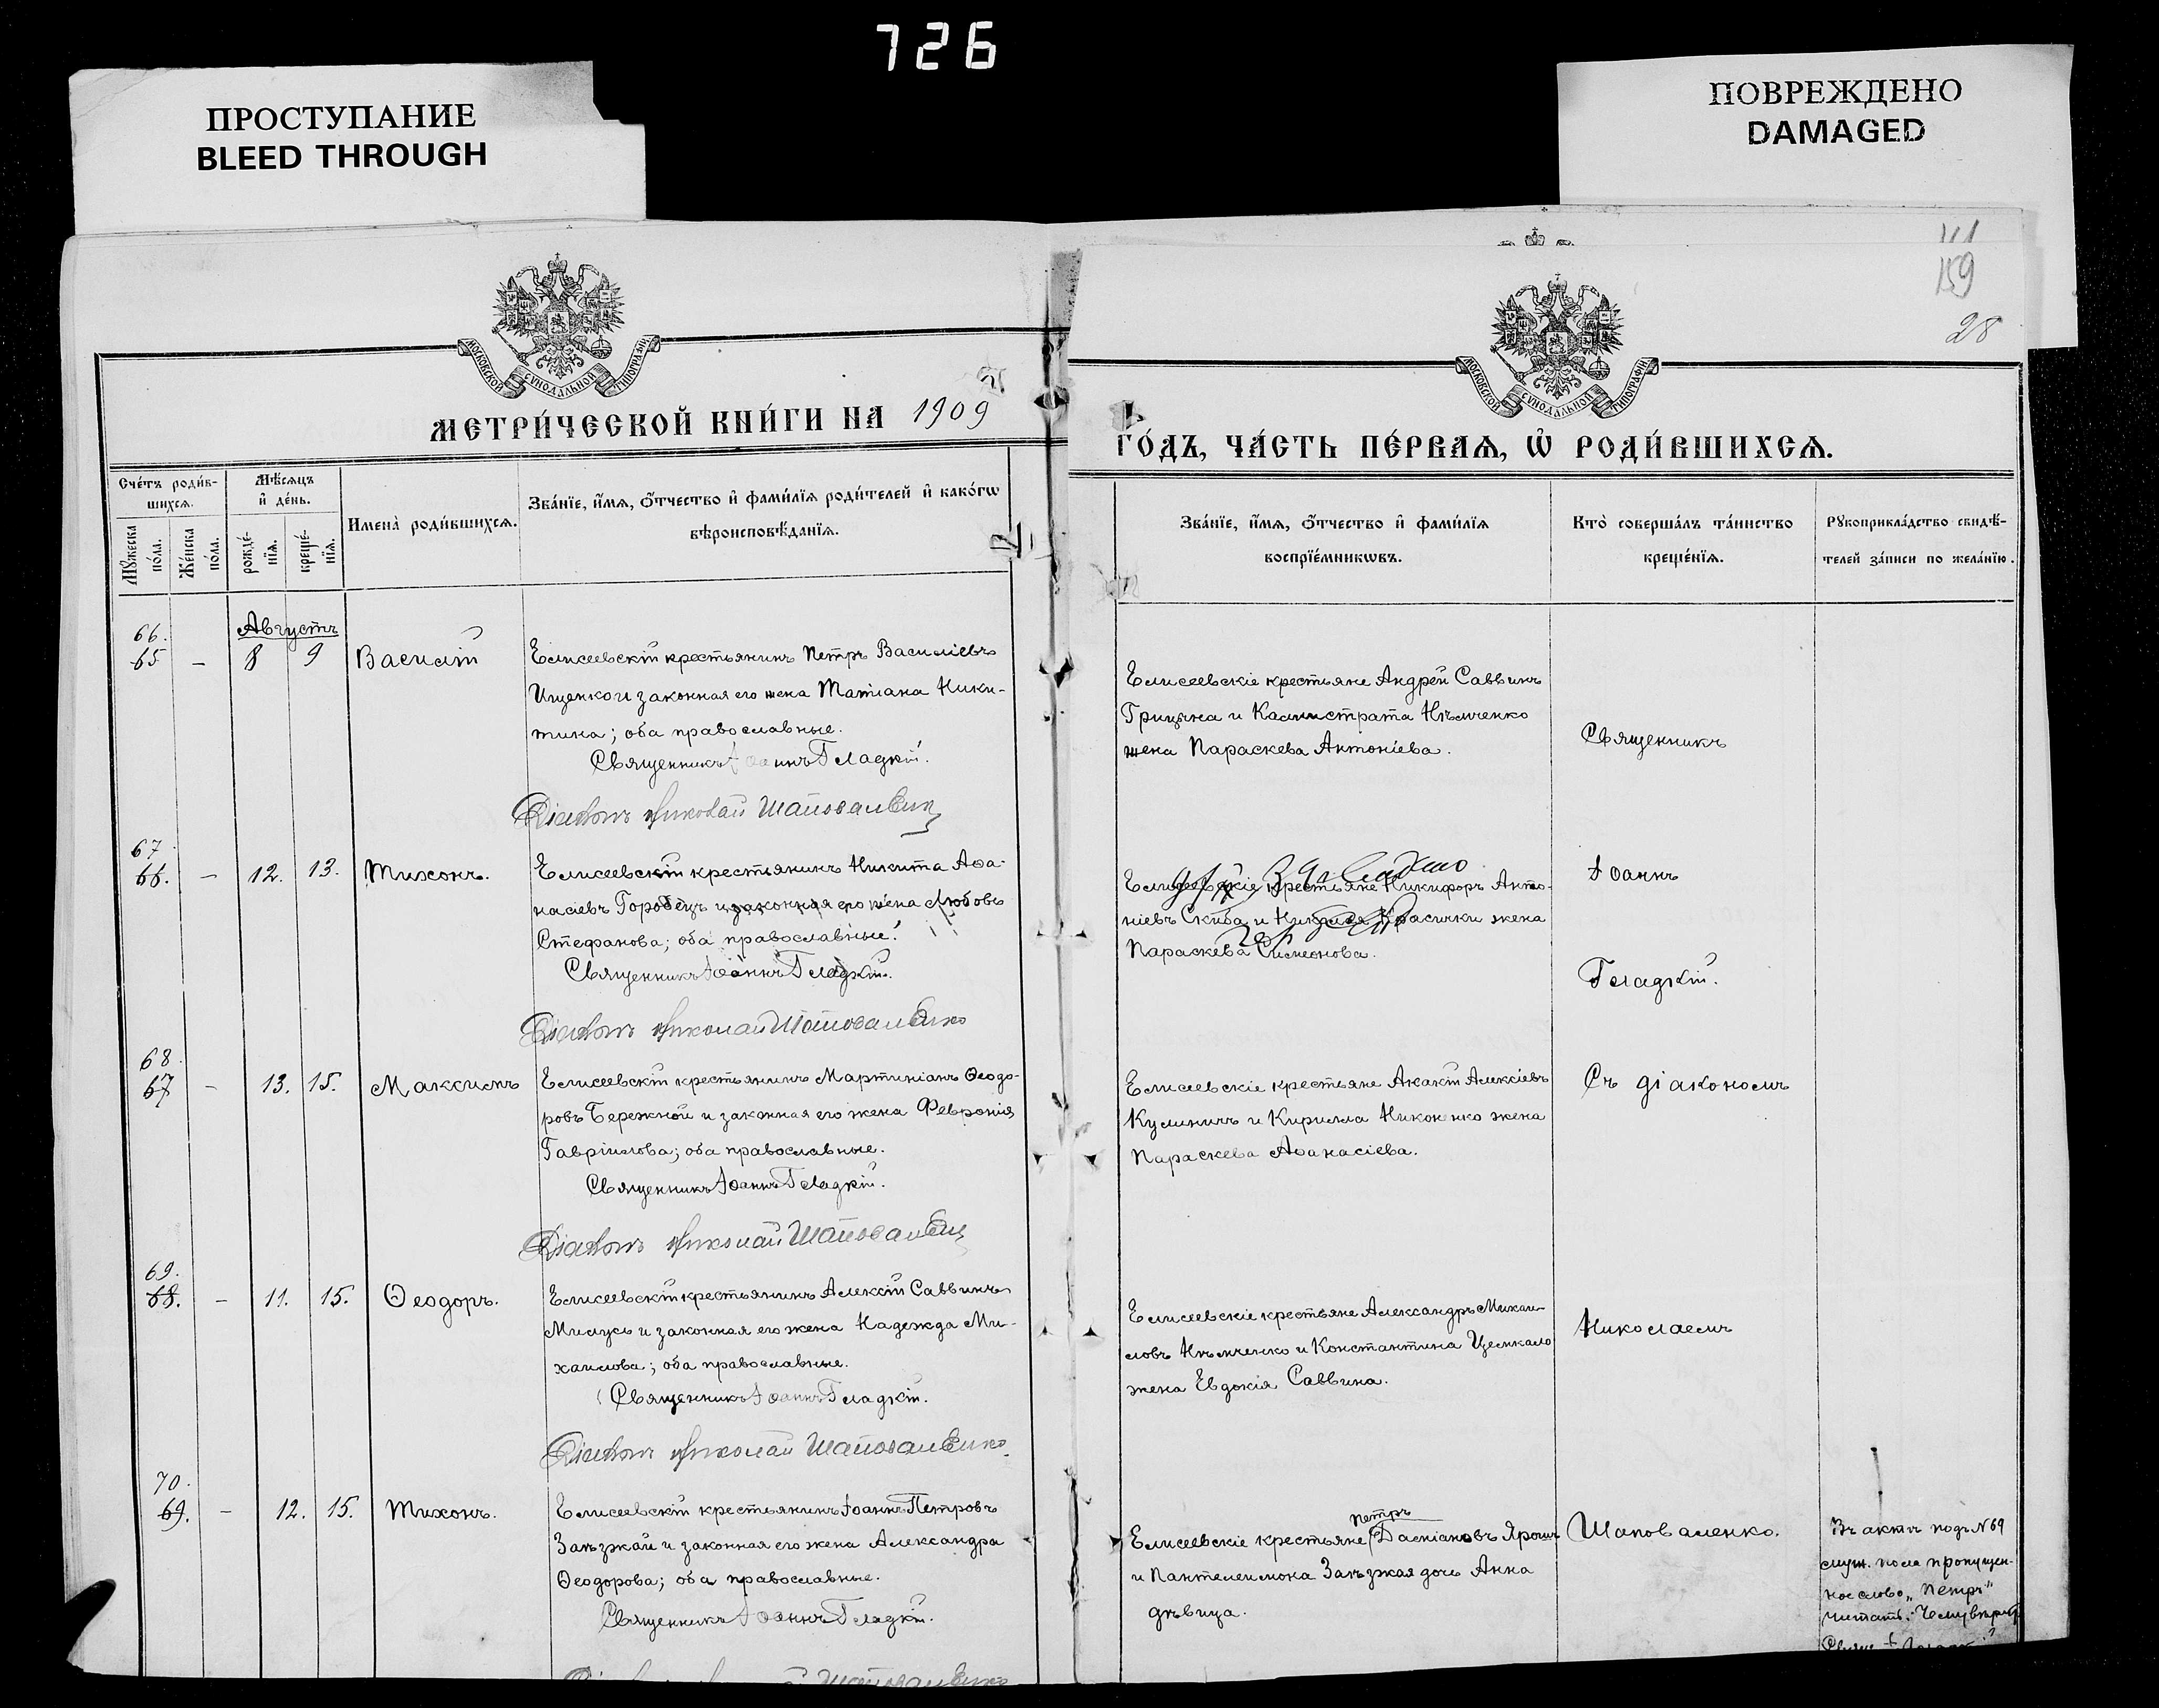 726
ПРОСТУПАНИЕ
BLEED THROUGH
ПОВРЕЖДЕНО
DAMAGED
159
28
МОСКОВСКОЙ СѴНОДАЛЬНОЙ ТИПОГРАФІИ
МОСКОВСКОЙ СѴНОДАЛЬНОЙ ТИПОГРАФІИ
МЕТРИ́ЧЕСКОЙ КНИ́ГИ НА 1909
ГО́ДЪ, ЧА́СТЬ ПЕ́РВАѦ, Ѡ҆ РОДИ́ВШИХСѦ.
Сче́тъ роди́в-
шихсѧ.
Мꙋ́жеска по́ла.
Же́нска по́ла.
Мѣ́сѧцъ
и҆ де́нь.
рожде́-нїѧ.
креще́-нїѧ.
Имена̀ роди́вшихсѧ.
Зва́нїе, и҆́мѧ, ѻ҆́тчество и҆ фами́лїѧ роди́телей и҆ како́гѡ
вѣроисповѣ́данїѧ.
Зва́нїе, и҆́мѧ, ѻ҆́тчество и҆ фами́лїѧ
воспрїе́мникѡвъ.
Кто̀ соверша́лъ та́инство
креще́нїѧ.
Рꙋкоприкла́дство свидѣ́-
телей за́писи по жела́нїю.
Августъ
66.
65 – 8 9 Василій
Елисеевскій крестьянинъ Петръ Василіевъ
Ищенко и законная его жена Татіана Ники-
тина; оба православные.
Священникъ Іоаннъ Гладкій.
Діаконъ Николай Шаповаленко
Елисеевскіе крестьяне Андрей Саввинъ
Грицына и Каллистрата Нѣмченко
жена Параскева Антоніева.
Священникъ
67.
66. – 12. 13. Тихонъ.
Елисеевскій крестьянинъ Никита Аѳа-
насіевъ Горобецъ и законная его жена Любовь
Стефанова; оба православные.
Священникъ Іоаннъ Гладкій.
Діаконъ Николай Шаповаленко
Елисеевскіе крестьяне Никифоръ Анто-
ніевъ Скиба и жена
Параскева Симеонова.
Іоаннъ
Гладкій.
68.
67 – 13. 15. Максимъ
Елисеевскій крестьянинъ Мартиніанъ Ѳеодо-
ровъ Бережной и законная его жена Февронія
Гавріилова; оба православные.
Священникъ Іоаннъ Гладкій.
Діаконъ Николай Шаповаленко
Елисеевскіе крестьяне Акакій Алексіевъ
Кулиничъ и Кирилла Никоненко жена
Параскева Аѳанасіева.
Съ діакономъ
69.
68. – 11. 15. Ѳеодоръ.
Елисеевскій крестьянинъ Алексій Саввинъ
Милусь и законная его жена Надежда Ми-
хаилова; оба православные.
Священникъ Іоаннъ Гладкій.
Діаконъ Николай Шаповаленко.
Елисеевскіе крестьяне Александръ Михаи-
ловъ Нѣмченко и Константина Цемкало
жена Евдокія Саввина.
Николаемъ
70.
69. – 12. 15. Тихонъ.
Елисеевскій крестьянинъ Іоаннъ Петровъ
Заѣзжай и законная его жена Александра
Ѳеодорова; оба православные.
Священникъ Іоаннъ Гладкій.
Шаповаленко
петръ
Елисеевскіе крестьяне Даміановъ Ярошъ
и Пантелеимона Заѣзжая дочь Анна
дѣвица.
Шаповаленко.
Въ актѣ подъ №69
пропущен-
ное слово „Петръ"
читать.